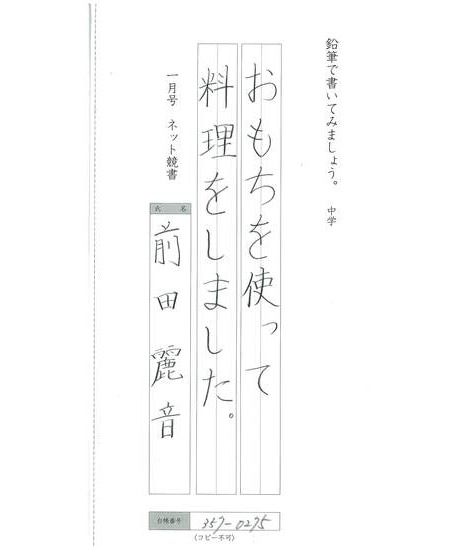 鉛筆で書いてみましょう。 中学
おもちを使って
料理をしました。
一月号 ネット競書
氏名
前田麗音
台帳番号 357-0275
(コピー不可)